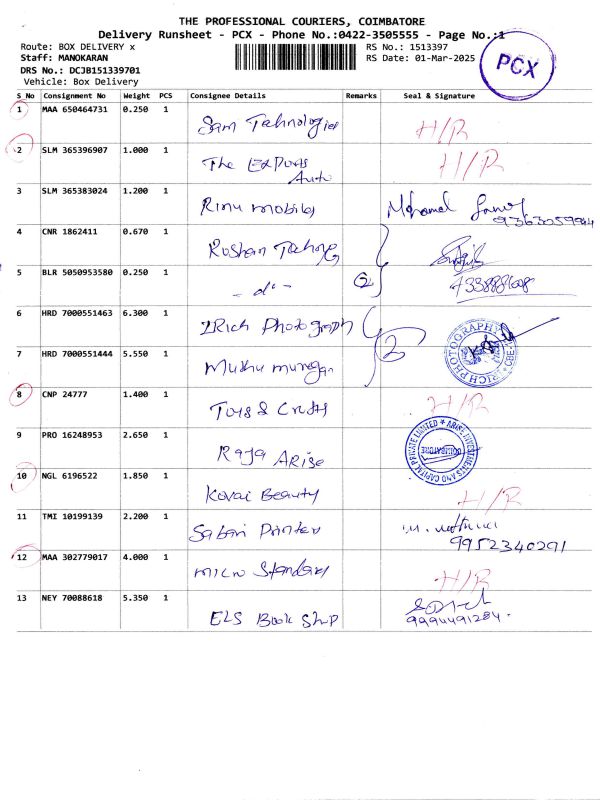 THE PROFESSIONAL COURIERS, COIMBATORE
Delivery Runsheet - PCX - Phone No.:0422-3505555 - Page No.:1
Route: BOX DELIVERY x
RS No.: 1513397
Staff: MANOKARAN
RS Date: 01-Mar-2025
DRS No.: DCJB151339701
Vehicle: Box Delivery
PCX
S_No Consignment No Weight PCS Consignee Details Remarks Seal & Signature
1 MAA 650464731 0.250 1 Sam Technologies H/R
2 SLM 365396907 1.000 1 The Exports H/R
Auto
3 SLM 365383024 1.200 1 Rinu mobiles Mohamed
9363059944
4 CNR 1862411 0.670 1 Roshan
5 BLR 5050953580 0.250 1 - do - 2 7338881608
6 HRD 7000551463 6.300 1 IRich Photograph
7 HRD 7000551444 5.550 1 Muthu murugan 2 RICH PHOTOGRAPHY CBE
8 CNP 24777 1.400 1 Toys & Crafts H/R
9 PRO 16248953 2.650 1 Raja Arise ARISE INVESTMENTS AND CAPITAL PRIVATE LIMITED COIMBATORE
10 NGL 6196522 1.850 1 Kovai Beauty H/R
11 TMI 10199139 2.200 1 Sabari Printers
9952340291
12 MAA 302779017 4.000 1 micro Standard H/R
13 NEY 70088618 5.350 1 ELS Book Shop
9994491284.